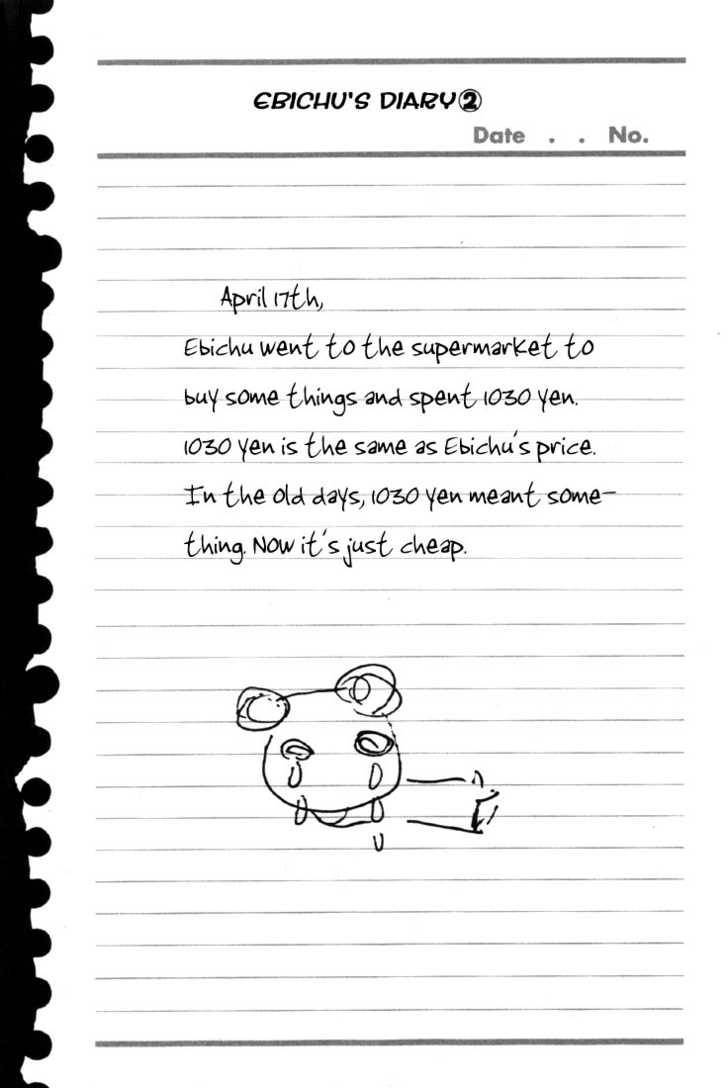 EBICHU'S DIARY②
Date . . No.
April 17th,
Ebichu went to the supermarket to
buy some things and spent 1030 yen.
1030 yen is the same as Ebichu's price.
In the old days, 1030 yen meant some-
thing. Now it's just cheap.